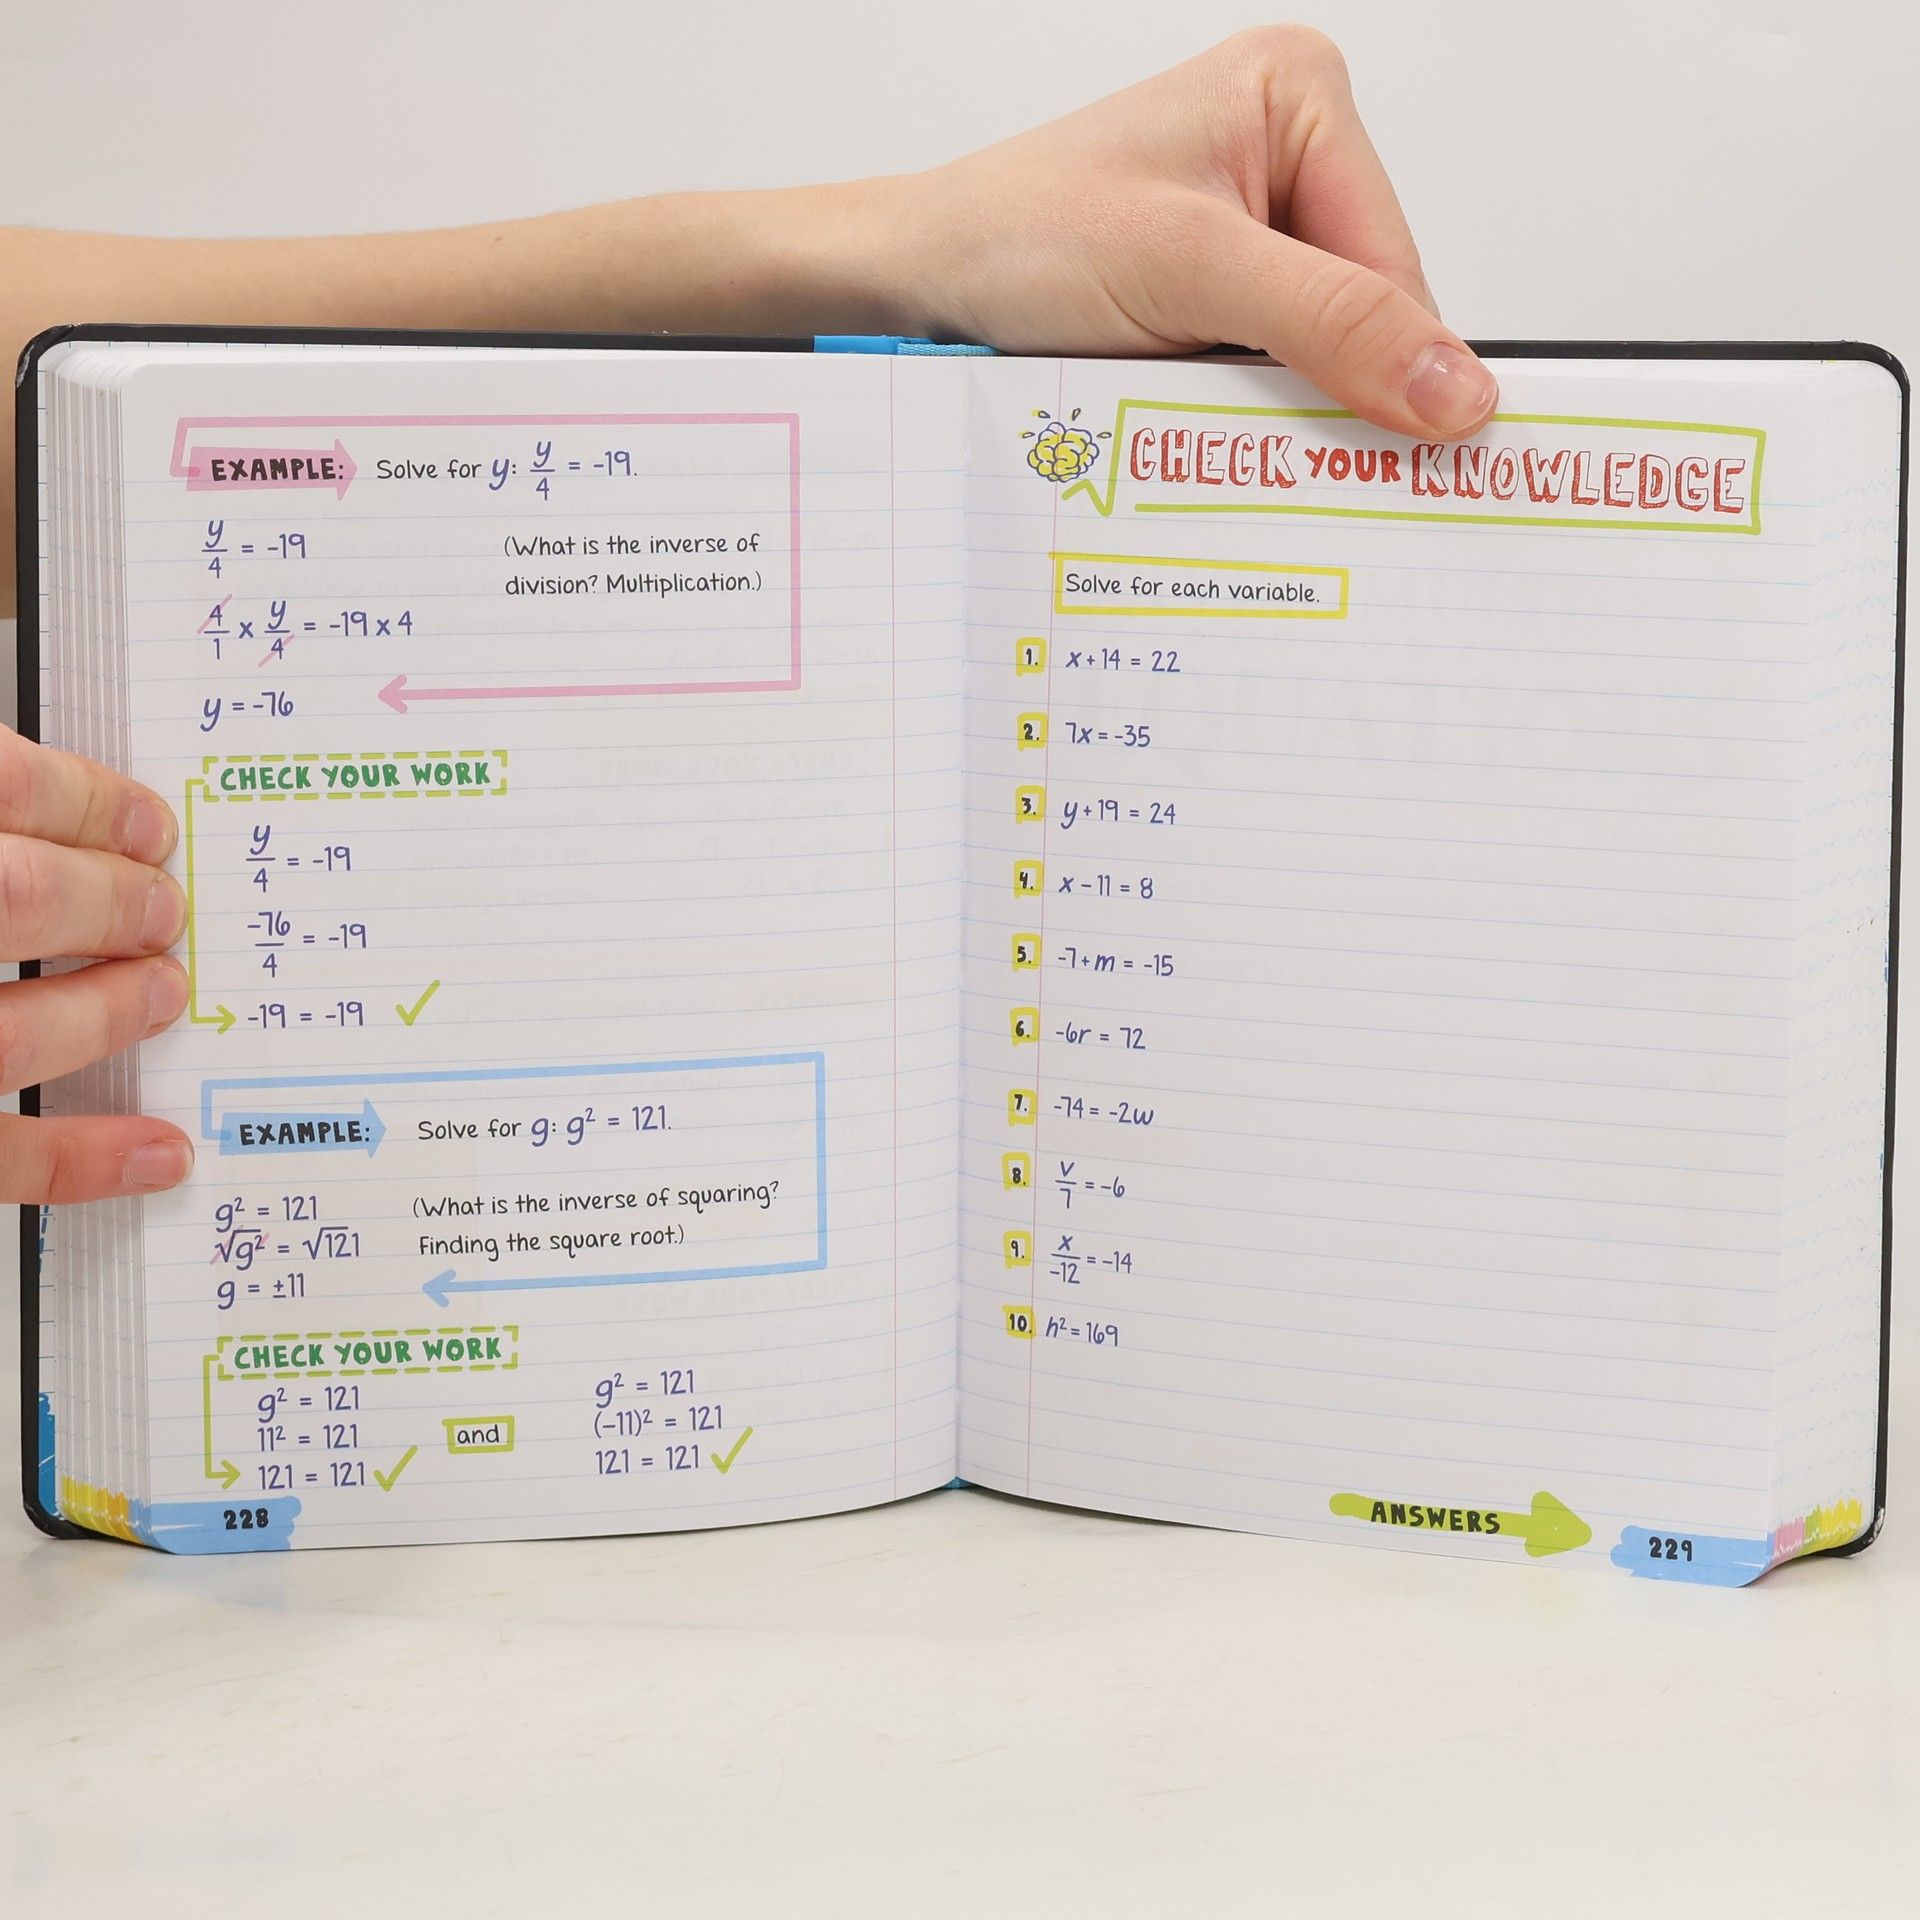 EXAMPLE: Solve for y: y/4 = -19.
y/4 = -19
(What is the inverse of
division? Multiplication.)
4/1 x y/4 = -19 x 4
y = -76
CHECK YOUR WORK
y/4 = -19
-76/4 = -19
-19 = -19 ✓
EXAMPLE: Solve for g: g² = 121.
g² = 121
(What is the inverse of squaring?
Finding the square root.)
√g² = √121
g = ±11
CHECK YOUR WORK
g² = 121
11² = 121
121 = 121 ✓
and
g² = 121
(-11)² = 121
121 = 121 ✓
228
CHECK YOUR KNOWLEDGE
Solve for each variable.
1. x + 14 = 22
2. 7x = -35
3. y + 19 = 24
4. x - 11 = 8
5. -7 + m = -15
6. -6r = 72
7. -74 = -2w
8. v/7 = -6
9. x/-12 = -14
10. h² = 169
ANSWERS
229